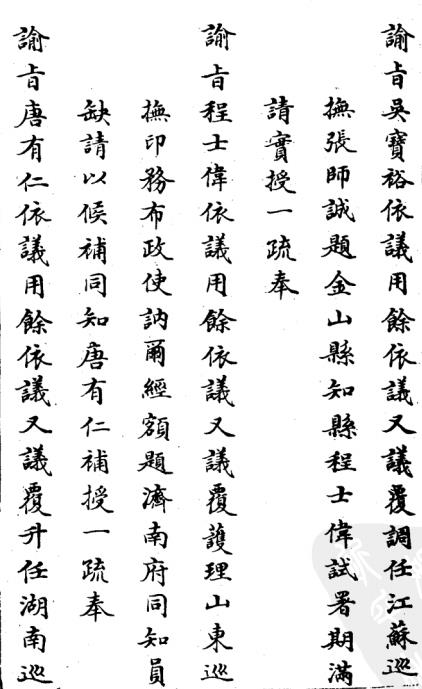 諭旨吳寶裕依議用餘依議又議覆調任江蘇巡
撫張師誠題金山縣知縣程士偉試署期滿
請實授一疏奉
諭旨程士偉依議用餘依議又議覆護理山東巡
撫印務布政使訥爾經額題濟南府同知員
缺請以候補同知唐有仁補授一疏奉
諭旨唐有仁依議用餘依議又議覆升任湖南巡